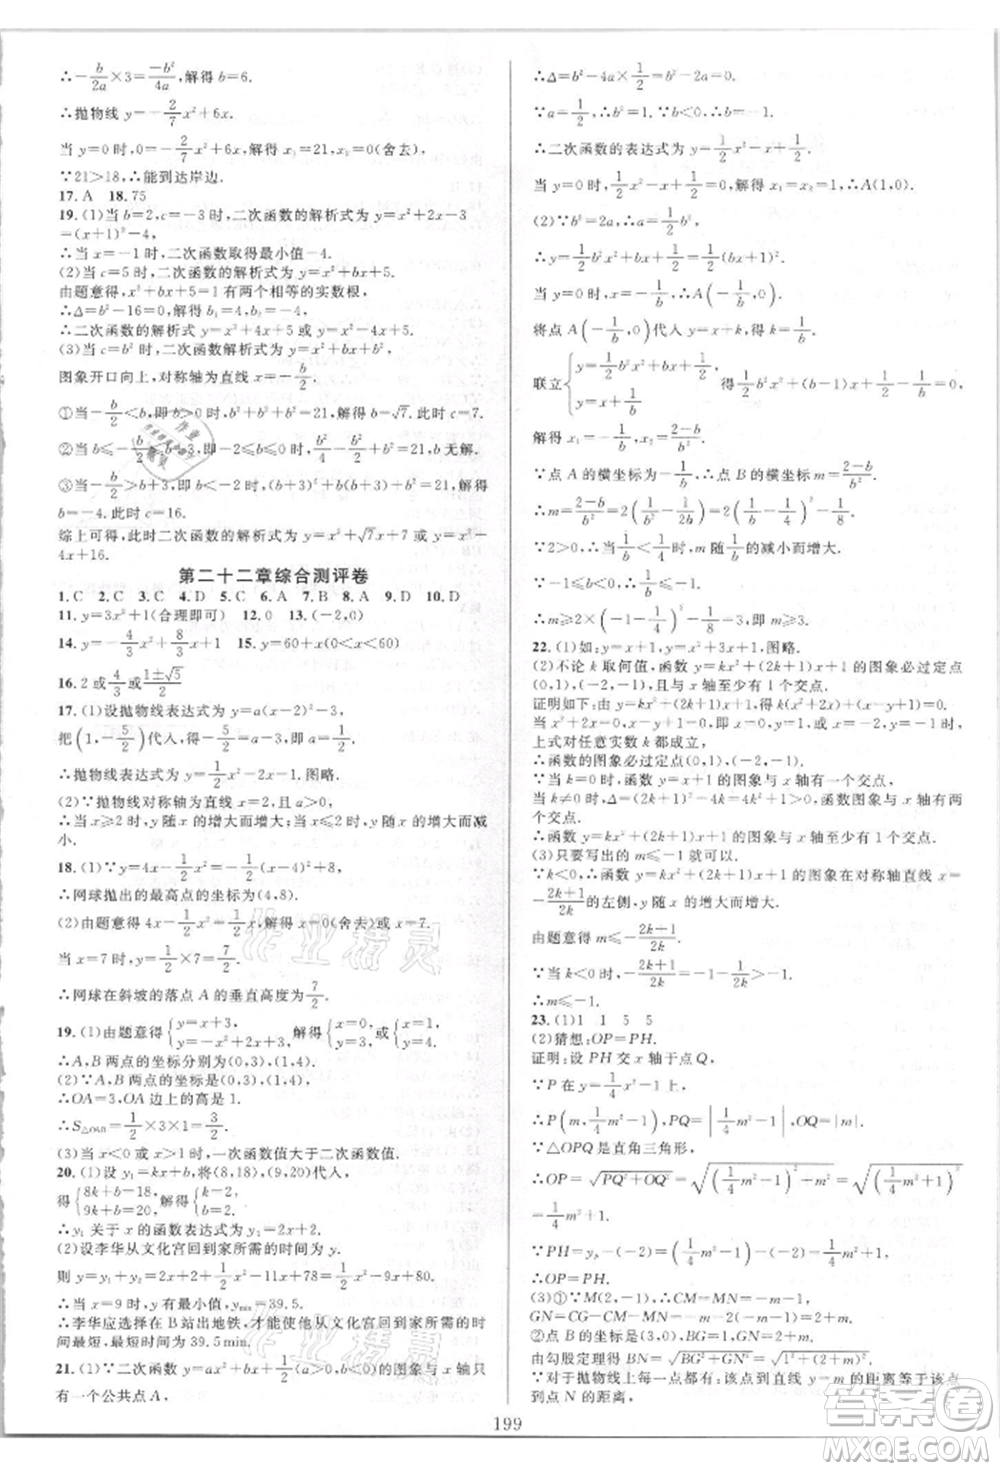 ∴-b/2a×3=-b²/4a,解得 b=6.
∴抛物线 y=-2/7x²+6x.
当 y=0 时,0=-2/7x²+6x,解得 x₁=21,x₂=0(舍去),
∵21>18,∴能到达岸边.
17.A 18.75
19.(1)当 b=2,c=-3 时,二次函数的解析式为 y=x²+2x-3
=(x+1)²-4,
∴当 x=-1 时,二次函数取得最小值-4.
(2)当 c=5 时,二次函数的解析式为 y=x²+bx+5.
由题意得,x²+bx+5=1 有两个相等的实数根,
∴Δ=b²-16=0,解得 b₁=4,b₂=-4,
∴二次函数的解析式 y=x²+4x+5 或 y=x²-4x+5.
(3)当 c=b² 时,二次函数解析式为 y=x²+bx+b²,
图象开口向上,对称轴为直线 x=-b/2.
①当-b/2<b,即 b>0 时,b²+b²+b²=21,解得 b=√7.此时 c=7.
②当 b≤-b/2≤b+3,即-2≤b≤0 时,
③当-b/2>b+3,即 b<-2 时,(b+3)²+b(b+3)+b²=21,解得
b=-4.此时 c=16.
综上可得,此时二次函数的解析式为 y=x²+√7x+7 或 y=x²-
4x+16.
第二十二章综合测评卷
1.C 2.C 3.C 4.D 5.C 6.A 7.B 8.A 9.D 10.D
11.y=3x²+1(合理即可) 12.0 13.(-2,0)
14.y=-4/3x²+8/3x+1 15.y=60+x(0<x<60)
16.2或4/3或(1±√5)/2
17.(1)设抛物线表达式为 y=a(x-2)²-3,
把(1,-5/2)代入,得-5/2=a-3,解得 a=1/2,
∴抛物线表达式为 y=1/2x²-2x-1.图略.
(2)∵抛物线对称轴为直线 x=2,且a>0,
∴当 x≥2 时,y 随 x 的增大而增大;当 x≤2 时,y 随 x 的增大而减
小.
18.(1)∵y=4x-1/2x²=-1/2(x-4)²+8,
∴网球抛出的最高点的坐标为(4,8).
(2)由题意得 4x-1/2x²=1/2x,解得 x=0(舍去)或 x=7.
当 x=7 时,y=1/2×7=7/2.
∴网球在斜坡的落点 A 的垂直高度为7/2.
19.(1)由题意得{y=x+3, 解得{x=0,
∴A,B 两点的坐标分别为(0,3),(-1,2).
(2)∵A,B 两点的坐标是(0,3),(-1,2),
∴OA=3,OA 边上的高是 1.
∴S△OAB=1/2×3×1=3/2.
(3)当-1<x<0 时,一次函数值大于二次函数值.
20.(1)设 y₁=kx+b,将(8,18),(9,20)代入,
得{8k+b=18, 9k+b=20, 解得{k=2, b=2,
∴y₁ 关于 x 的函数表达式为 y₁=2x+2.
(2)设李华从文化宫回到家所需的时间为 y,
则 y=y₁+y₂=2x+2+1/2x²-11x+78=1/2x²-9x+80,
∴当 x=9 时,y 有最小值,ymin=39.5.
∴李华应选择在 B 站出地铁,才能使他从文化宫回到家所需的时
间最短,最短时间为 39.5 min.
21.(1)∵二次函数 y=ax²+bx+1/2(a>0)的图象与 x 轴只
有一个公共点 A,
∴Δ=b²-4a×1/2=b²-2a=0.
∵a=1/2,∴b²=1.∵b<0,∴b=-1.
∴二次函数的表达式为 y=1/2x²-x+1/2.
当 y=0 时,1/2x²-x+1/2=0,解得 x₁=x₂=1,∴A(1,0).
(2)∵b²=2a,∴a=1/2b²,
∴y=1/2b²x²+bx+1/2=1/2(bx+1)².
当 y=0 时,x=-1/b,∴A(-1/b,0).
将点 A(-1/b,0)代入 y=x+k,得 k=1/b.
联立{y=1/2b²x²+bx+1/2, y=x+1/b 得1/2b²x²+(b-1)x+1/2-1/b=0,
解得 x₁=-1/b,x₂=(2-b)/b².
∵点 A 的横坐标为-1/b,∴点 B 的横坐标 m=(2-b)/b².
∴m=(2-b)/b²=2(1/b²-1/2b)=2(1/b-1/4)²-1/8.
∵2>0,∴当1/b<1/4时,m 随1/b的减小而增大.
∵-1≤b<0,∴1/b≤-1.
∴m≥2×(-1-1/4)²-1/8=3,即 m≥3.
22.(1)如:y=x+1,y=x²+3x+1.图略.
(2)不论 k 取何值,函数 y=kx²+(2k+1)x+1 的图象必过定点
(0,1),(-2,-1),且与 x 轴至少有 1 个交点.
证明如下:由 y=kx²+(2k+1)x+1,得 k(x²+2x)+(x-y+1)=0.
当 x²+2x=0,x-y+1=0,即 x=0,y=1 或 x=-2,y=-1 时,
上式对任意实数 k 都成立,
∴函数的图象必过定点(0,1),(-2,-1).
∵当 k=0 时,函数 y=x+1 的图象与 x 轴有一个交点,
当 k≠0 时,Δ=(2k+1)²-4k=4k²+1>0,函数图象与 x 轴有两
个交点.
∴函数 y=kx²+(2k+1)x+1 的图象与 x 轴至少有 1 个交点.
(3)只要写出的 m≤-1 就可以.
∵k<0,∴函数 y=kx²+(2k+1)x+1 的图象在对称轴直线 x=
-(2k+1)/2k的左侧,y 随 x 的增大而增大.
由题意得 m≤-(2k+1)/2k.
∵当 k<0 时,-(2k+1)/2k=-1-1/2k>-1.
∴m≤-1.
23.(1)1 1 5 5
(2)猜想:OP=PH.
证明:设 PH 交 x 轴于点 Q,
∵P 在 y=1/4x²-1 上,
∴P(m,1/4m²-1),PQ=|1/4m²-1|,OQ=|m|.
∵△OPQ 是直角三角形,
∴OP=√(PQ²+OQ²)=√((1/4m²-1)²+m²)=√((1/4m²+1)²)
=1/4m²+1.
∴OP=PH.
由勾股定理得 BN=√(BG²+GN²)=√(1²+2²)=√5.
∵对于抛物线上每一点都有该点到直线 y=m 的距离等于该点
到点 N 的距离,
199
答案圈
MXQE.COM
作业精灵
作业精灵